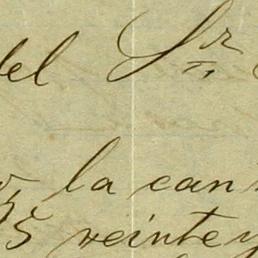 del Sr
la can
5 veintey